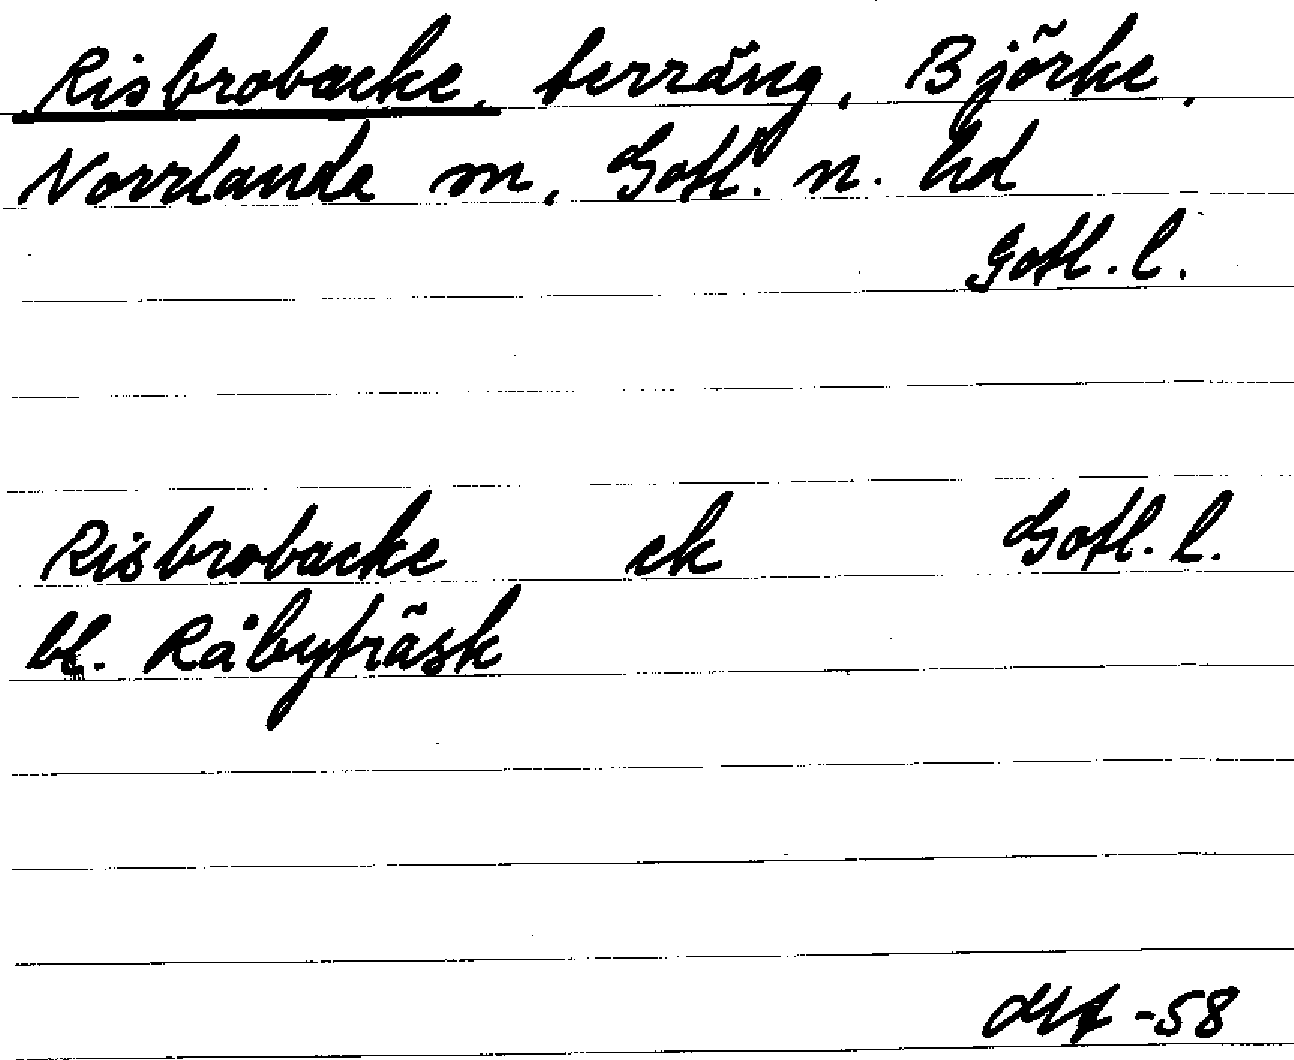 Risbrobacke, terräng, Björke,
Norrlanda sn, Gotl. n. hd
Gotl. l.
Risbrobacke ek Gotl. l.
bl. Råbyträsk
-58